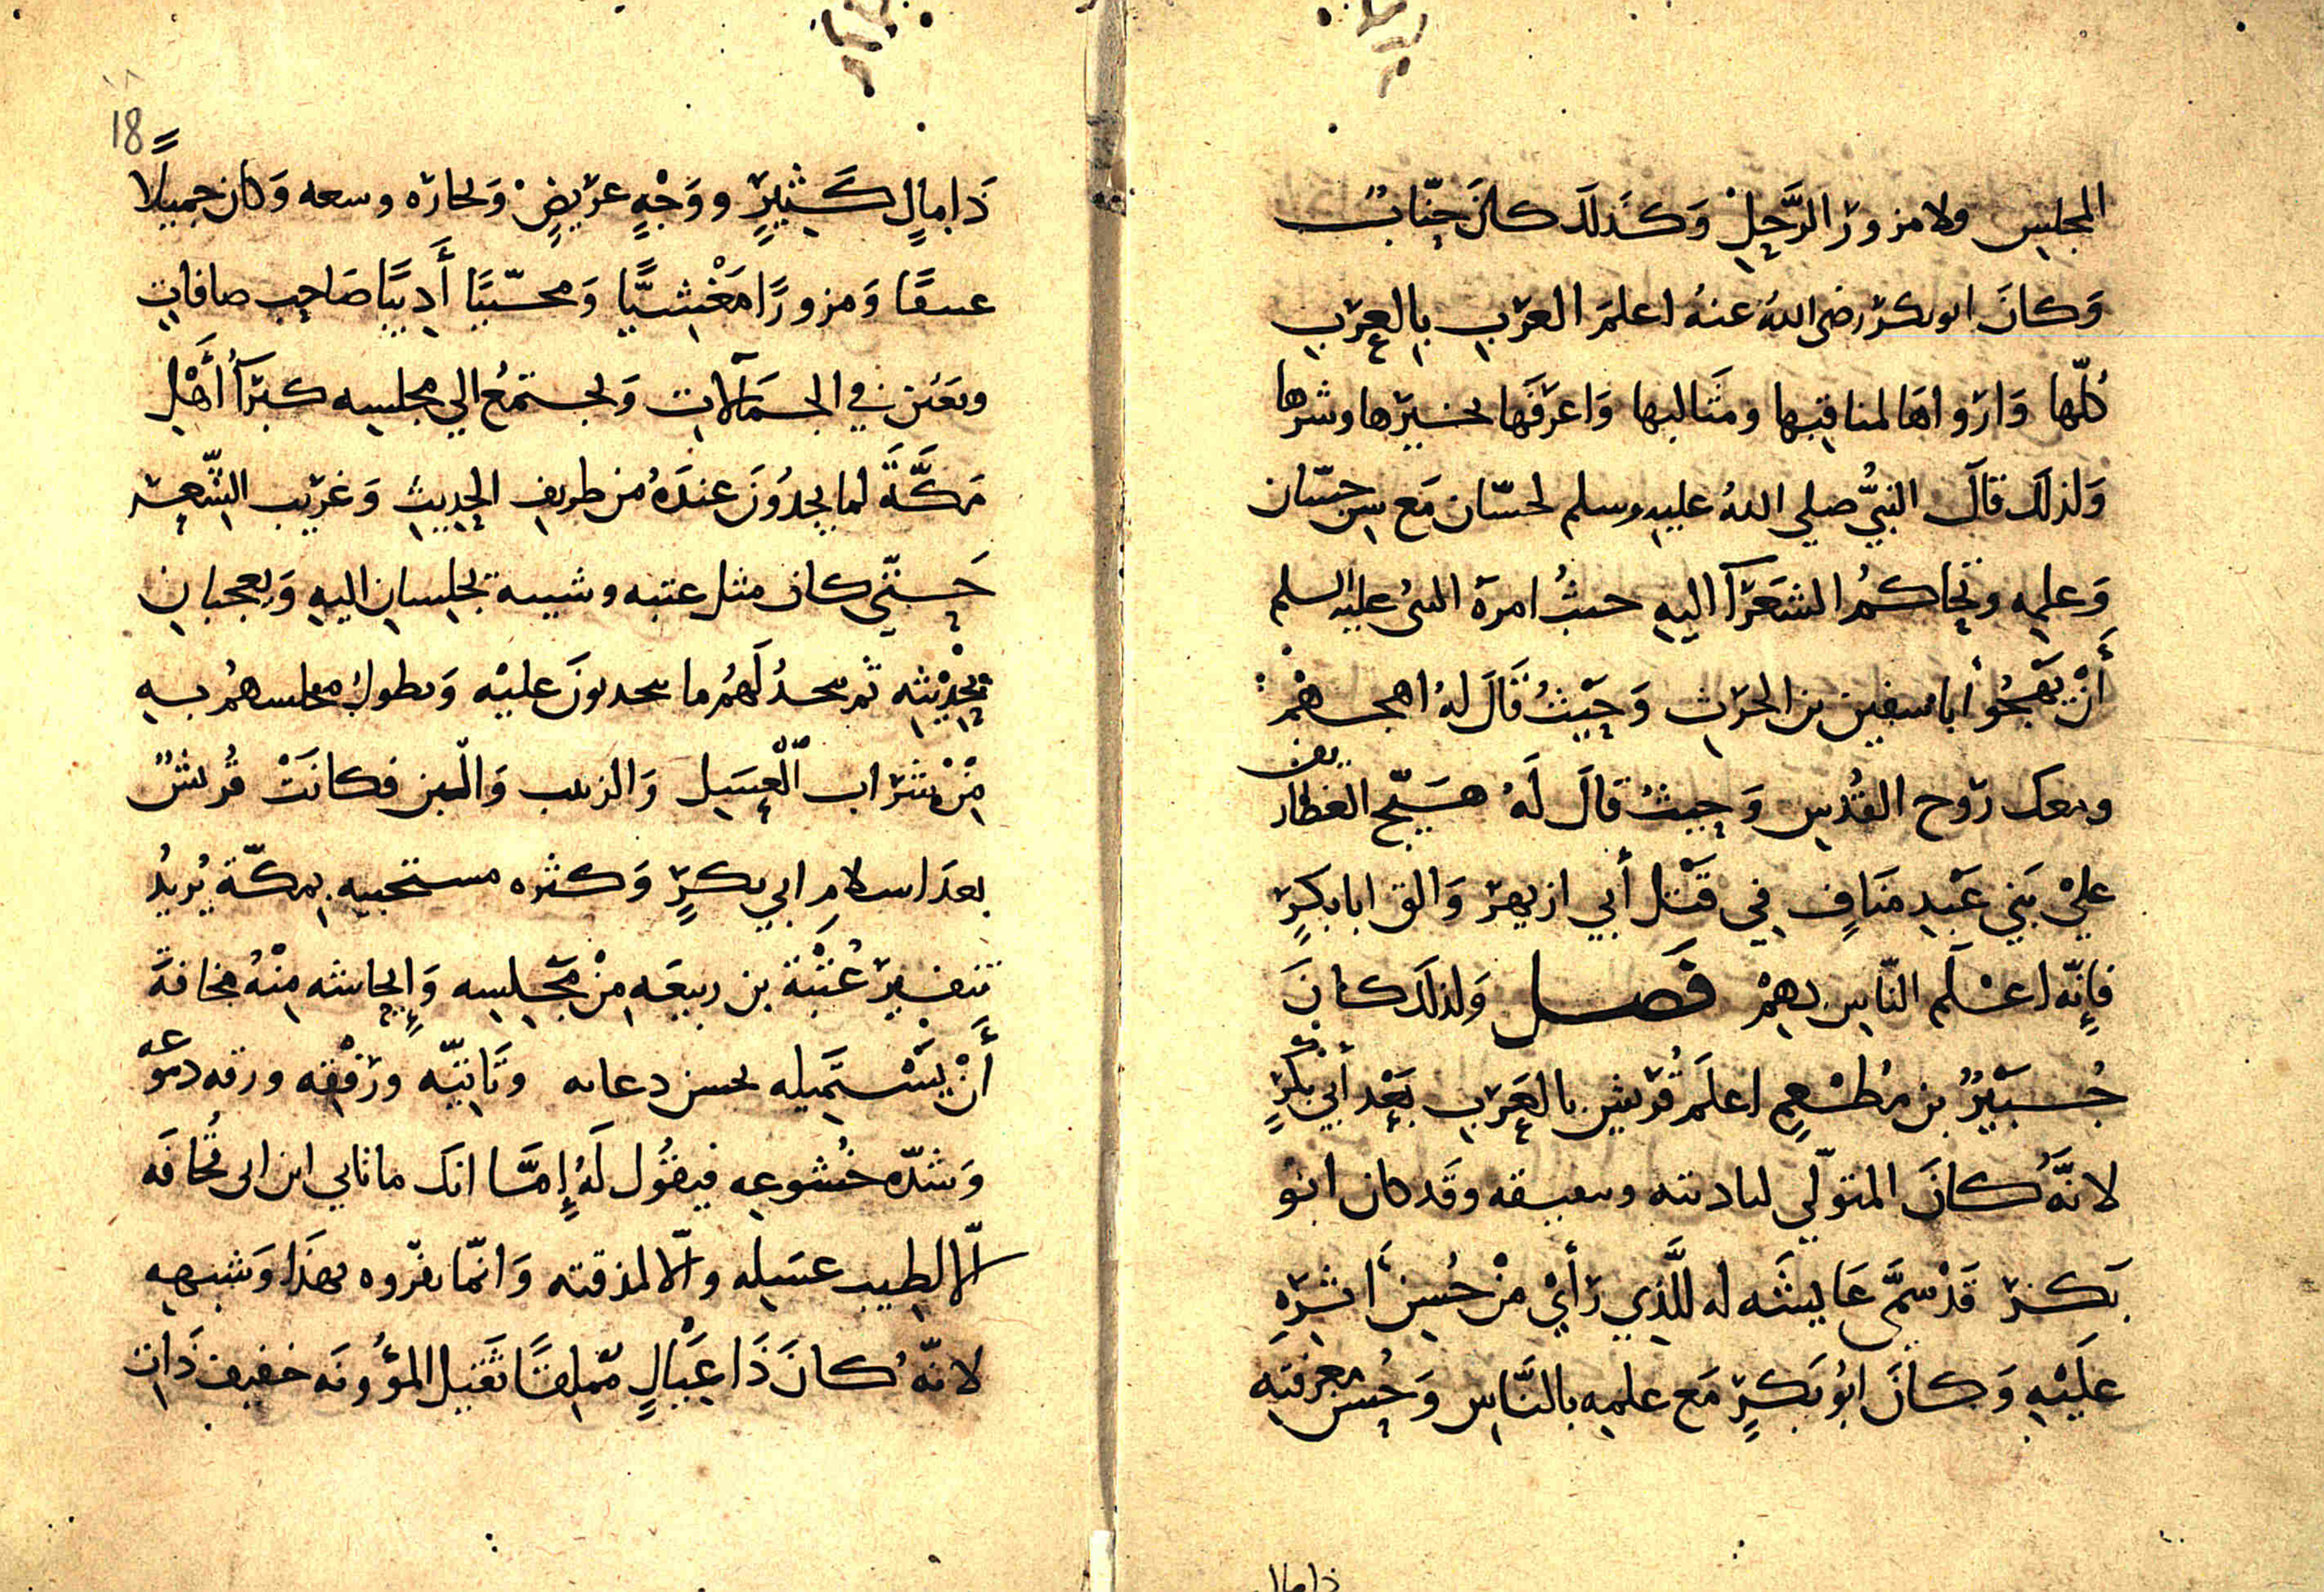 المجلس ولا مزور الرَّحلِ وَكذلك كان خبّاب
وَكانَ ابو بكر رضى اللهُ عنهُ اعلمَ العرَب بالعرَب
كُلّها وَارواهَا لمناقبها ومثَالبها وَاعرَفَها بخيرها وشرها
وَلذلك قَالَ النبيُّ صلي اللهُ عليه وسلم لحسّان مَع سن حسّان
وَعلمه وتحاكمُ الشعَرآ اليه حيثُ امرهَ النبىُ عليه السلم
أَنْ يَهجُوا أبا سفين بن الحرث وَحَيْثُ قَالَ لهُ اهجهمْ
ومعك رَوح القُدس وَحيثُ قالَ لَهُ هَيّج الغطاريف
عليْ بَني عَبْد مَنَافٍ في قَتْل أبي ازيهر وَالق ابا بكرٍ
فإنّه اعْلَم النّاس بهمْ فَصـل وَلذلك كانَ
جُبَيْرُ بن مُطْعِمٍ اعلَم قُريش بالعَرَب بَعْد أبي بكرٍ
لانَّهُ كانَ المتوَلّي لتاديبه وتثقيفه وقَد كان ابو
بكر قَدْ سمَّى عَايشَه له للَّذي رَأيْ منْ حُسن أثره
عَلَيْه وَكانَ ابُو بَكرٍ مَع علمه بالنَّاس وَحُسن معرفته
ذا مال
18
ذَا مالٍ كَثيرٍ ووَجْهٍ عريضٍ وَتجاره وسعه وَكان جميلًا
عتيقًا وَمزورًا مَغْشيًّا وَمحبّبًا أَديبًا صَاحب ضيافات
ويعَين في الحمَالات وَيجتمعُ الي مجلسه كبَرآُ أَهْل
مَكَّةَ لما يجدُونَ عندَهُ من طريف الحديث وَغريب الشّعر
حَتّي كان مثل عتبه وشيبه يجلسان اليه وَيعجبان
بحْديثه ثم يتخذُ لَهُم ما يتحدثونَ عليْه وَيطول مجلسهمُ به
منْ شرَاب الْعسَل وَالزبيب وَاللّبن فكانَتْ قُريشُ
بعدَ اسلام ابي بكرٍ وَكثره مستجيبيه بمكّة يُريدُ
تنفير عُتْبَة بن ربيعَه منْ مَجلسه وَإيحاشه مِنْهُ مخافةَ
أَنْ يَسْتميله بحسن دعائه وتَانيّه ورفْقه ورقه دموعه
وَشدّه خُشوعه فيقُول لَهُ إمَّا انك ما تاتي ابن ابى قُحافَه
الّا لطيب عسَله والّا لمذقته وَانمّا يغرّوه بهذَا وَشبهه
لانّهُ كانَ ذَا عيَالٍ مملقًا ثَقيل المؤُونَه خفيف ذَات